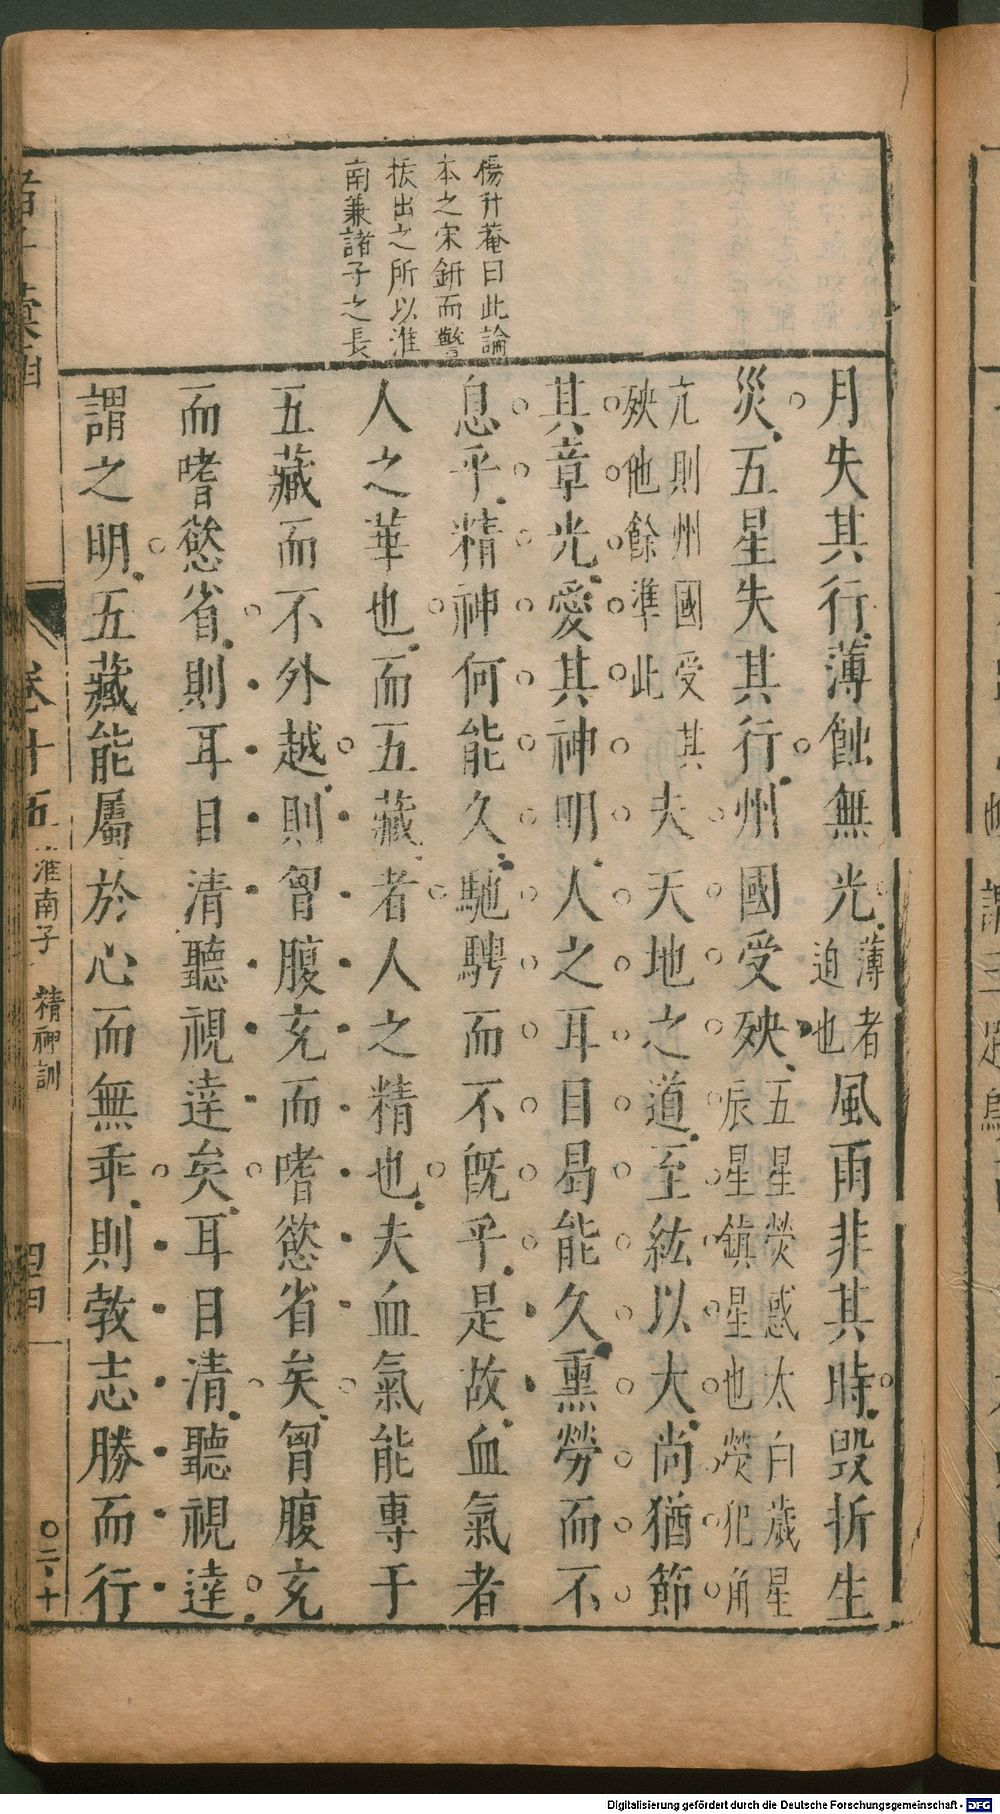 楊升菴曰此論
本之宋鈃而警
拔出之所以淮
南兼諸子之長
月失其行薄蝕無光薄者迫也風雨非其時毀折生
災五星失其行州國受殃五星熒惑太白歲星辰星鎮星也熒犯角
亢則州國受其殃他餘準此夫天地之道至紘以大尚猶節
其章光愛其神明人之耳目曷能久熏勞而不
息乎精神何能久馳騁而不旣乎是故血氣者
人之華也而五藏者人之精也夫血氣能專于
五藏而不外越則胷腹充而嗜慾省矣胷腹充
而嗜慾省則耳目清聽視達矣耳目清聽視達
謂之明五藏能屬於心而無乖則敦志勝而行
卷十五
淮南子 精神訓
Digitalisierung gefördert durch die Deutsche Forschungsgemeinschaft - DFG